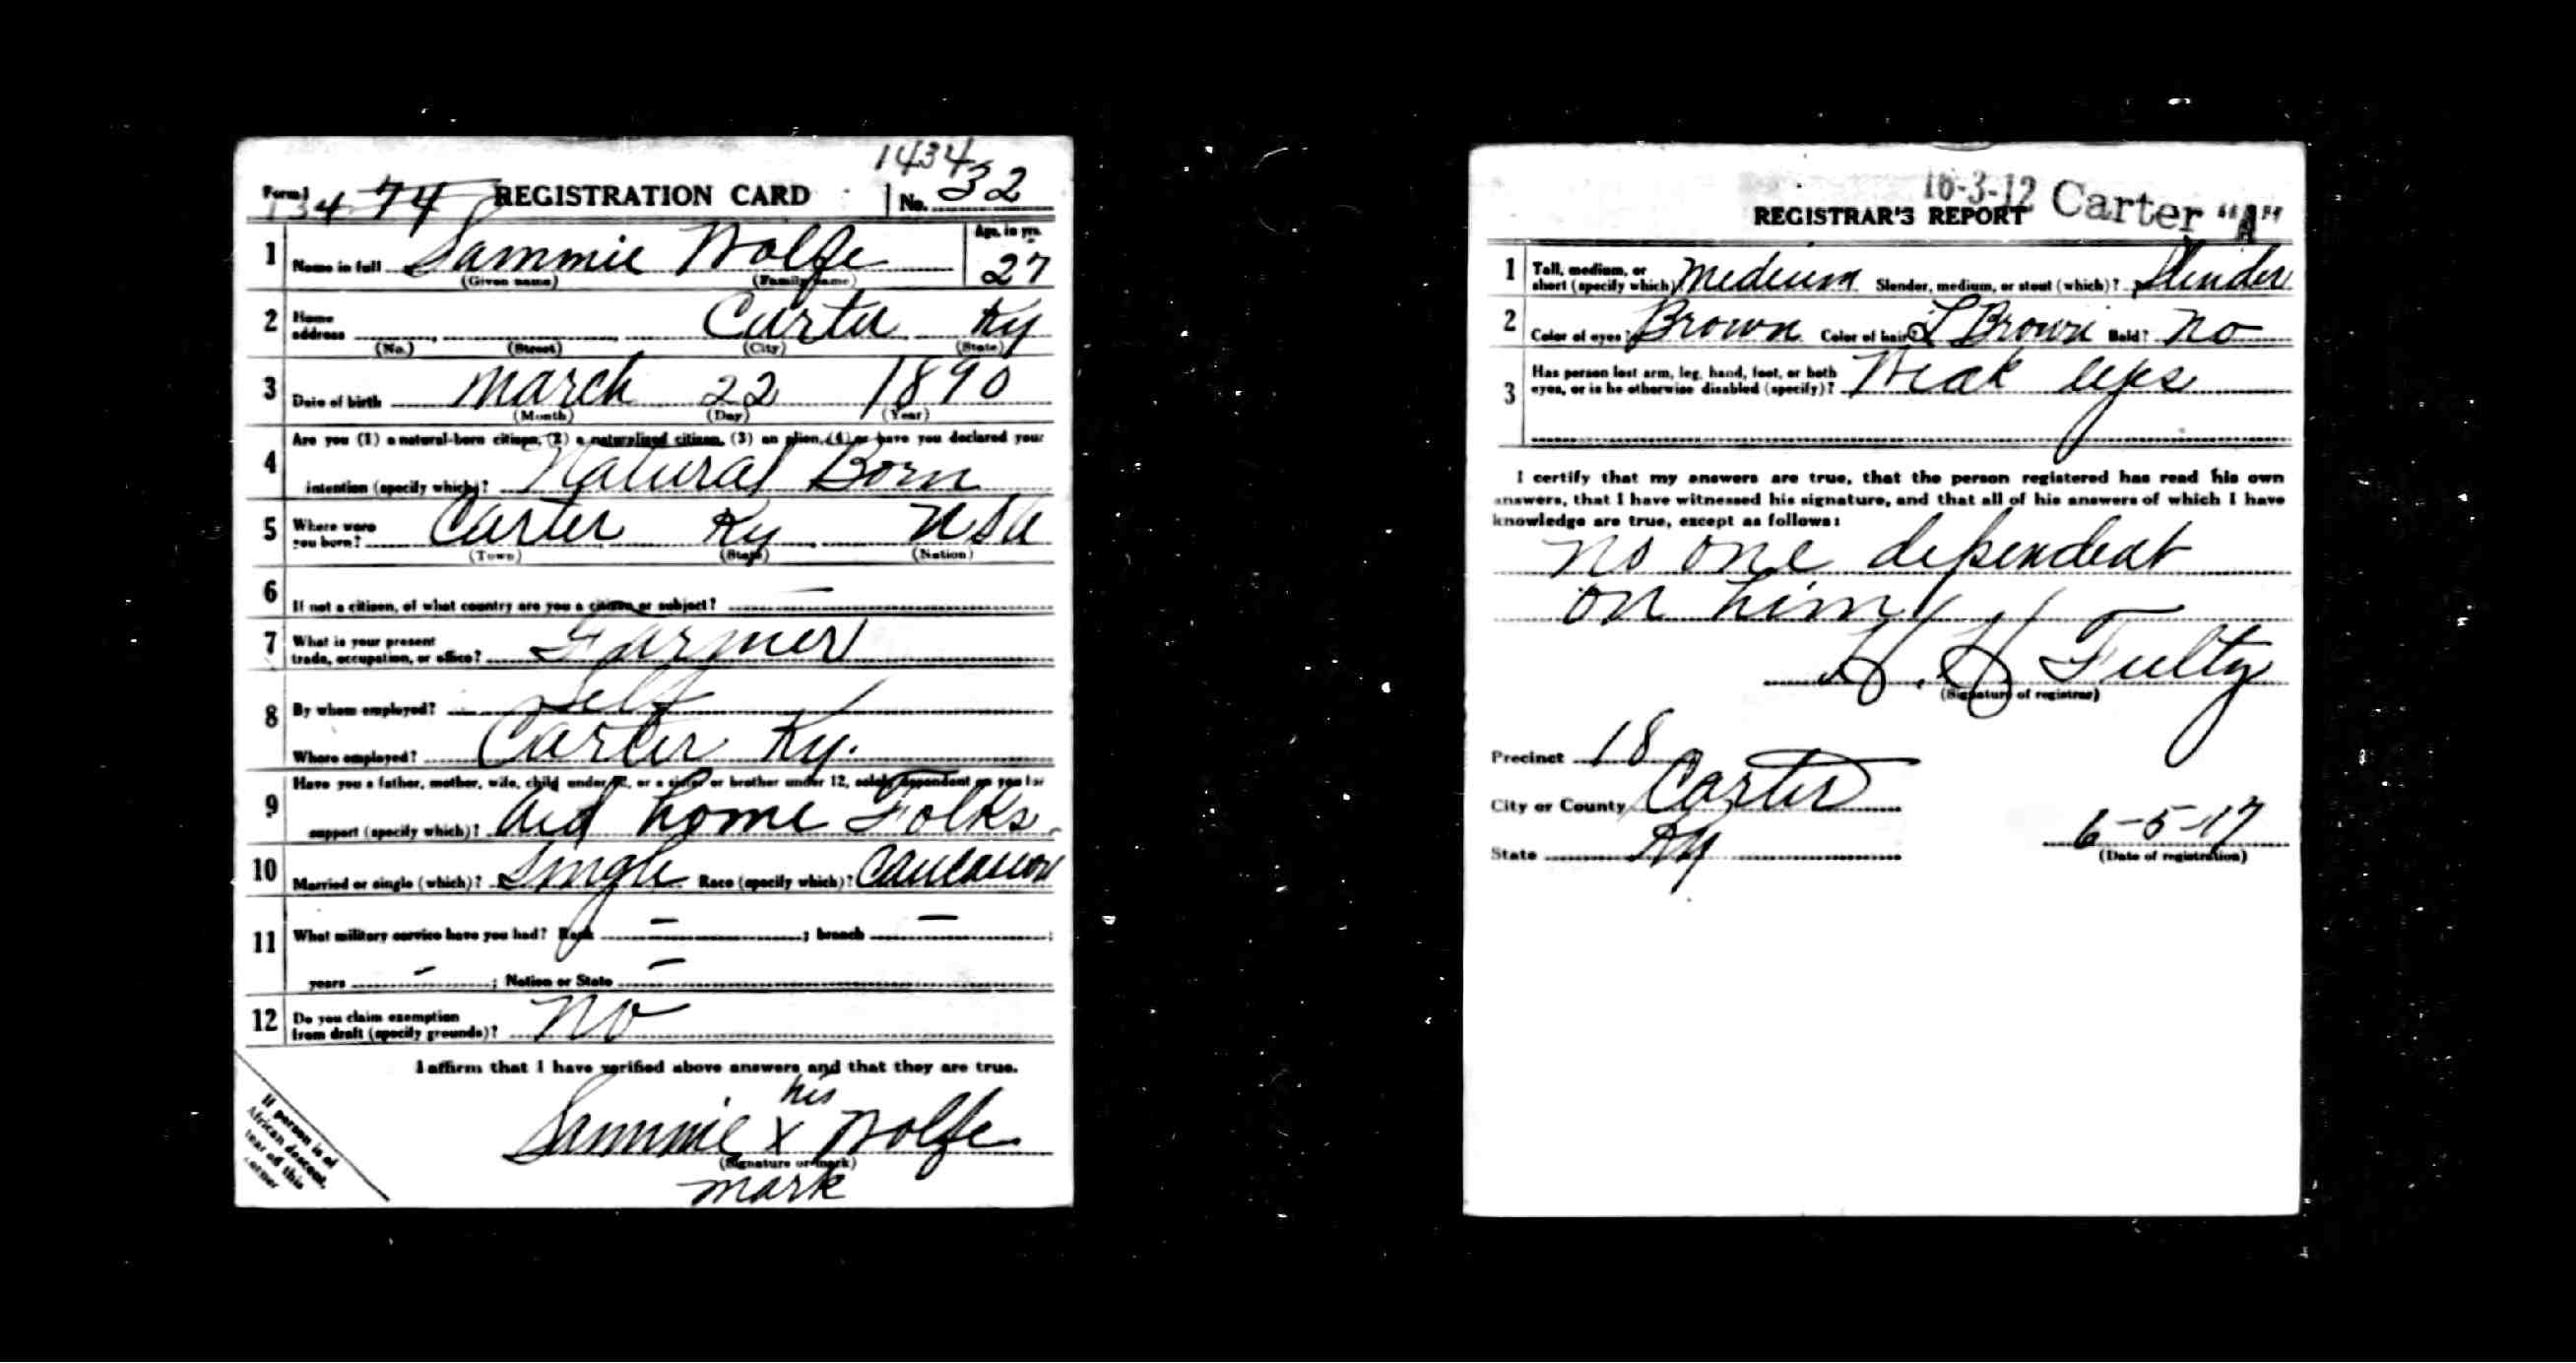 1434
Form 1 REGISTRATION CARD No. 32
74
1 Name in full Sammie Wolfe Age, in yrs. 27
(Given name) (Family name)
2 Home address Carter Ky
(No.) (Street) (City) (State)
3 Date of birth March 22 1890
(Month) (Day) (Year)
4 Are you (1) a natural-born citizen, (2) a naturalized citizen, (3) an alien, (4) or have you declared your
intention (specify which)? Natural Born
5 Where were you born? Carter Ky USA
(Town) (State) (Nation)
6 If not a citizen, of what country are you a citizen or subject? —
7 What is your present trade, occupation, or office? Farmer
8 By whom employed? Self
Where employed? Carter Ky.
9 Have you a father, mother, wife, child under 12, or a sister or brother under 12, solely dependent on you for
support (specify which)? Aid home Folks
10 Married or single (which)? Single Race (specify which)? Caucasion
11 What military service have you had? Rank — ; branch — ;
years — ; Nation or State —
12 Do you claim exemption from draft (specify grounds)? No
I affirm that I have verified above answers and that they are true.
his
Sammie X Wolfe
(Signature or mark)
mark
If person is of
African descent,
tear off this
corner
16-3-12 Carter "A"
REGISTRAR'S REPORT
1 Tall, medium, or short (specify which)? Medium Slender, medium, or stout (which)? Slender
2 Color of eyes? Brown Color of hair? L Brown Bald? No
3 Has person lost arm, leg, hand, foot, or both
eyes, or is he otherwise disabled (specify)? Weak eyes
I certify that my answers are true, that the person registered has read his own
answers, that I have witnessed his signature, and that all of his answers of which I have
knowledge are true, except as follows:
No one dependent
on him
H. H. Fultz
(Signature of registrar)
Precinct 18
City or County Carter
State Ky 6-5-17
(Date of registration)